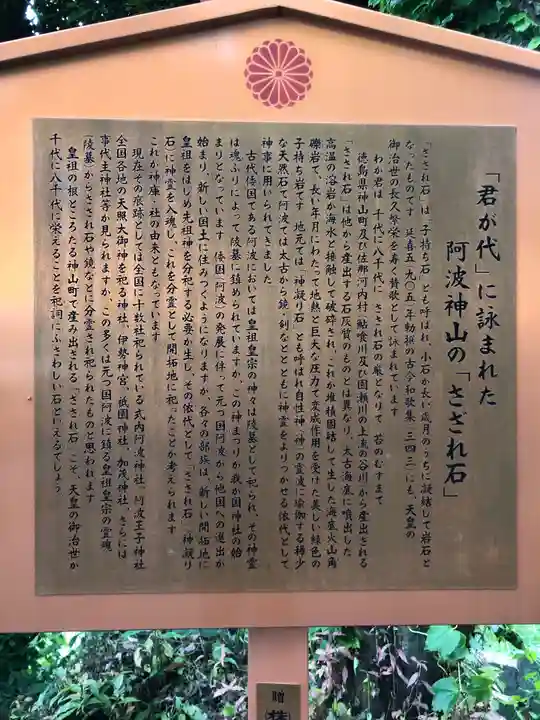 「君が代」に詠まれた
阿波神山の「さざれ石」
「さざれ石」は「子持ち石」とも呼ばれ、小石が長い歳月のうちに凝結して岩石と
なったものです 延喜五(九〇五)年勅撰の古今和歌集(三四三)にも、天皇の
御治世の長久繁栄を寿く賛歌として詠まれています
わか君は 千代に八千代に さされ石の巌となりて 苔のむすまて
徳島県神山町及び佐那河内村、鮎喰川及び園瀬川の上流の谷川から産出される
「さざれ石」は他から産出する石灰質のものとは異なり、太古海底に噴出した
高温の溶岩が海水と接触して破砕され、これが堆積固結して生じた海底火山角
礫岩で、長い年月にわたって地熱と巨大な圧力で変成作用を受けた美しい緑色の
子持ち岩です 地元では「神凝り石」とも呼ばれ自性神(神)の霊波に瑜伽する稀少
な天然石で阿波では太古から鏡・剣などとともに神霊をよりつかせる依代として
神事に用いられてきました
古代倭国である阿波においては皇祖皇宗の神々は陵墓として祀られ、その神霊
は魂ふりによって陵墓に鎮められていますが、この神まつりが我か国神社の始
まりとなっています 倭国(阿波)の発展に伴って元つ国阿波から他国への進出が
始まり、新しい国土に住みつくようになりますが、各々の部族は、新しい開拓地に
皇祖をはじめ先祖神を分祀する必要が生し、その依代として「さざれ石」(神凝り
石)に神霊を入魂し、これを分霊として開拓地に祀ったことが考えられます
これが神庫(社)の由来ともなっています
現在その痕跡としては全国に十数社祀られている式内阿波神社、阿波王子神社
全国各地の天照大御神を祀る神社、伊勢神宮、祇園神社、加茂神社、さらには
事代主神社等が見られますが、この多くは元つ国阿波に鎮る皇祖皇宗の霊魂
(陵墓)からさざれ石や鏡などに分霊され祀られたものと思われます
皇祖の根ところたる神山町で産み出される「さざれ石」こそ、天皇の御治世が
千代に八千代に栄えることを祀詞にふさわしい石といえるでしょう
贈